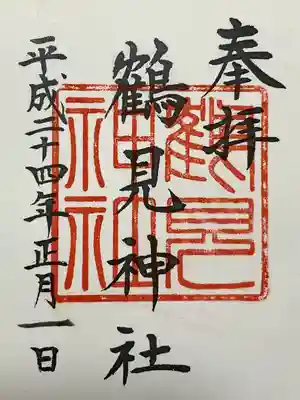 奉拝
鶴見神社
平成二十四年正月一日
鶴見神社